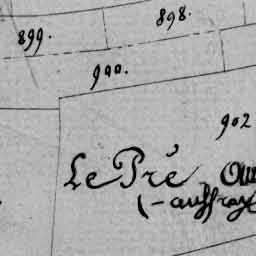 898.
899.
900.
902
Le Pré Ou
(-auffray